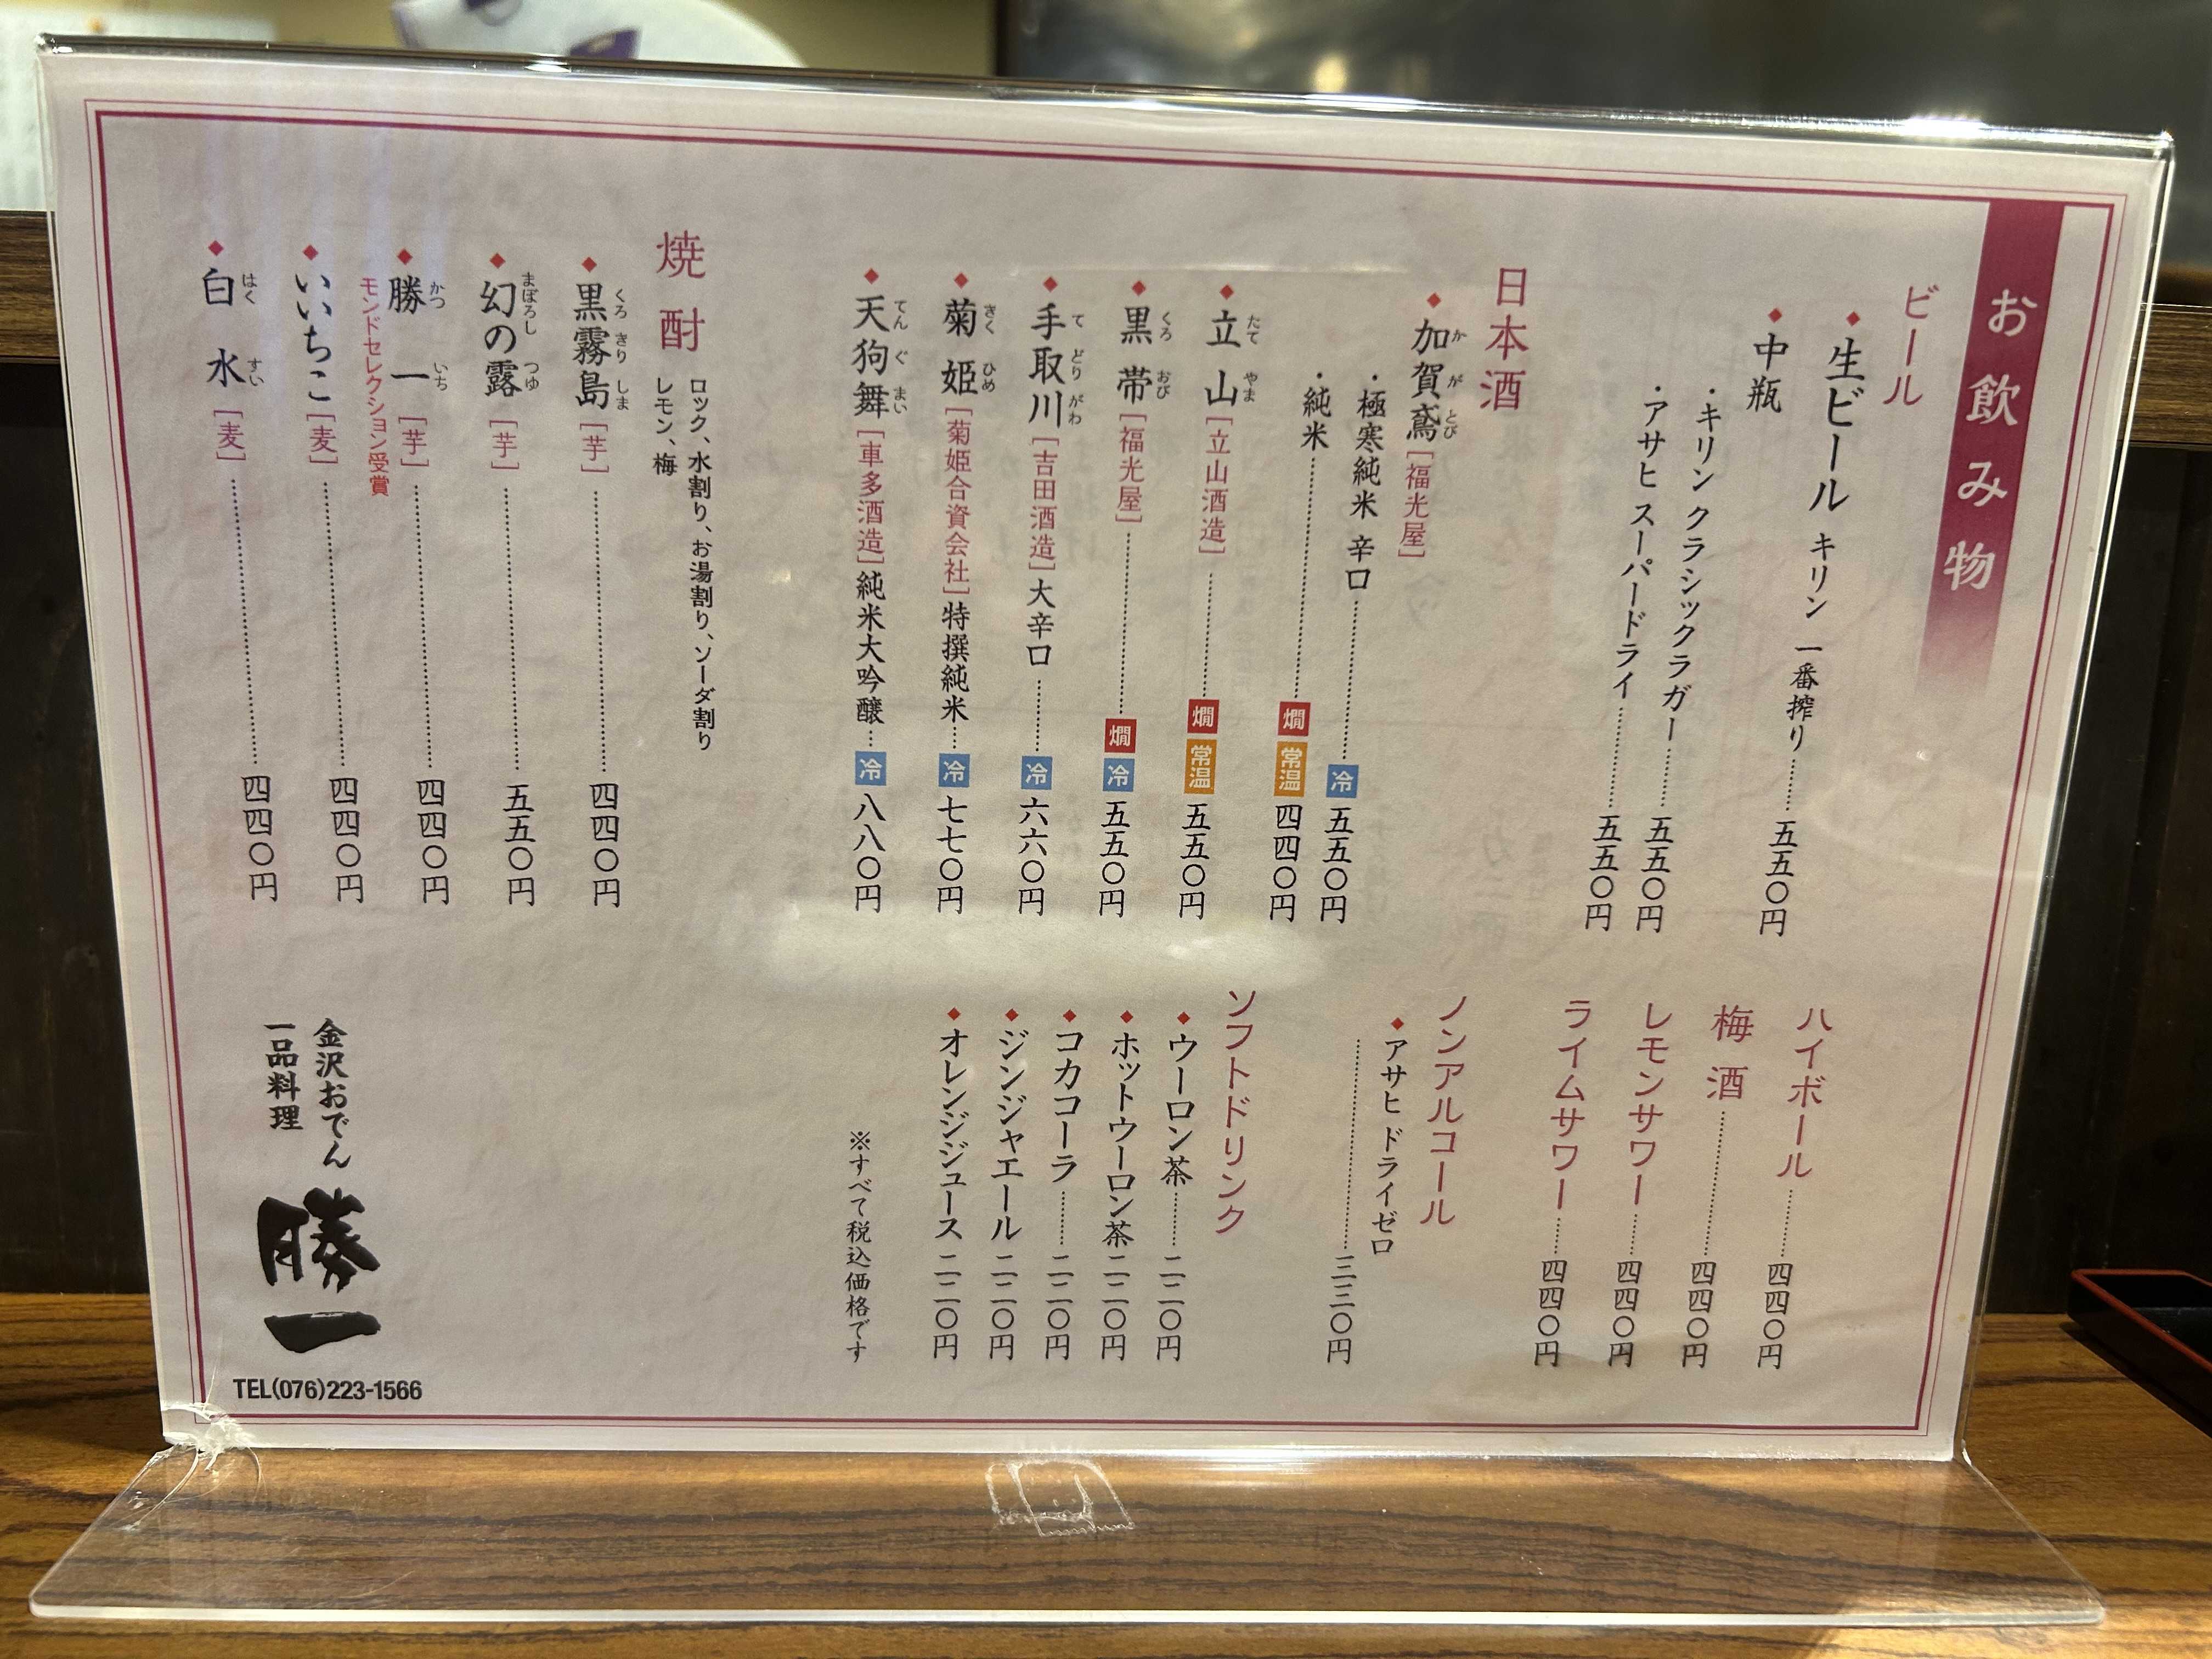 お飲み物
ビール
◆生ビール キリン 一番搾り…………五五〇円
◆中瓶
・キリン クラシックラガー…………五五〇円
・アサヒ スーパードライ…………五五〇円
日本酒
◆加賀鳶[福光屋]
かがとび
・極寒純米 辛口…………冷 五五〇円
・純米…………燗 常温 四四〇円
◆立山[立山酒造]…………燗 常温 五五〇円
たてやま
◆黒帯[福光屋]…………燗 冷 五五〇円
くろおび
◆手取川[吉田酒造]大辛口…………冷 六六〇円
てどりがわ
◆菊姫[菊姫合資会社]特撰純米…冷 七七〇円
きくひめ
◆天狗舞[車多酒造]純米大吟醸…冷 八八〇円
てんぐまい
焼酎
ロック、水割り、お湯割り、ソーダ割り
レモン、梅
◆黒霧島[芋]…………四四〇円
くろきりしま
◆幻の露[芋]…………五五〇円
まぼろし つゆ
◆勝一[芋]…………四四〇円
かついち
モンドセレクション受賞
◆いいちこ[麦]…………四四〇円
◆白水[麦]…………四四〇円
はくすい
ハイボール…………四四〇円
梅酒…………四四〇円
レモンサワー……四四〇円
ライムサワー……四四〇円
ノンアルコール
◆アサヒ ドライゼロ
…………三三〇円
ソフトドリンク
◆ウーロン茶………二二〇円
◆ホットウーロン茶 二二〇円
◆コカコーラ………二二〇円
◆ジンジャエール 二二〇円
◆オレンジジュース 二二〇円
※すべて税込価格です
金沢おでん
一品料理
勝一
TEL(076)223-1566